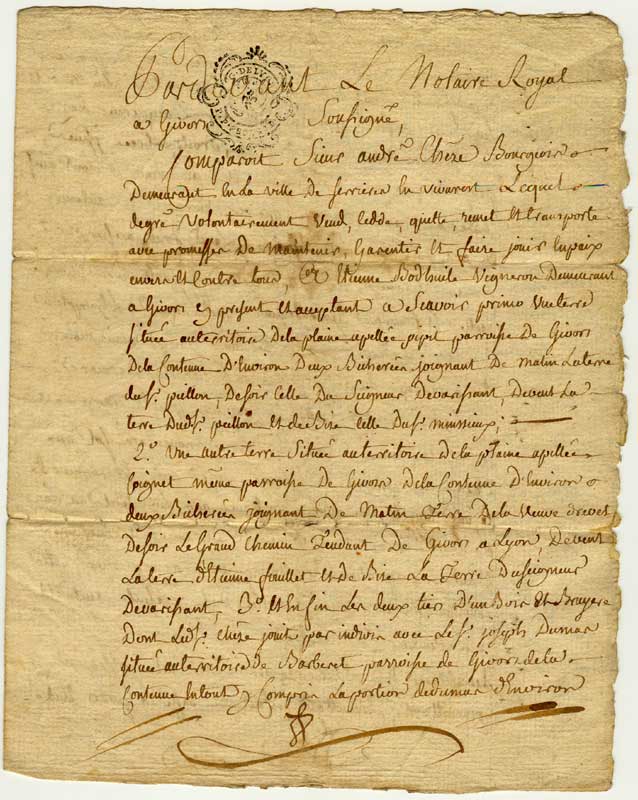 Pardevant Le Notaire Royal
a Givors Soussigné,
Comparoit Sieur andré Chèze Bourgeois
Demeurant En La ville De serrières En vivarest Lequel
degré volontairement vend, Cedde, quitte, remet Et transporte
avec promesses De Maintenir, Garentir Et faire jouir En paix
envers Et Contre tous, Etienne Vigneron Demeurant
a Givors y present Et acceptant a Scavoir primo Une terre
située au territoire De la plaine apellée parroisse De Givors
De la Contenue D'Environ Deux Bicherées joignant De matin La terre
du Sr. peillon, De soir Celle Du Seigneur Devarissant, De vent La
terre Dudt. Sr. peillon Et de Bize Celle du Sr.
2.° Une autre terre Située au territoire de la plaine apellée
Coignet même parroisse De Givors De la Contenue D'Environ
deux Bicherées joignant De Matin Terre De La Veuve drevet
De soir Le Grand Chemin Tendant De Givors a Lyon, De vent
La terre d'Etienne fouillet Et De Bize La Terre Du seigneur
Devarissant, 3.° Et Enfin Les deux tiers D'un Bois Et Bruyere
Dont Ledt. Sr. chèze jouit par indivis avec Le Sr. joseph Dumas
située au territoire de Barberet parroisse de Givors de la
Contenue En tout y Compris La portion de dumas d'Environ